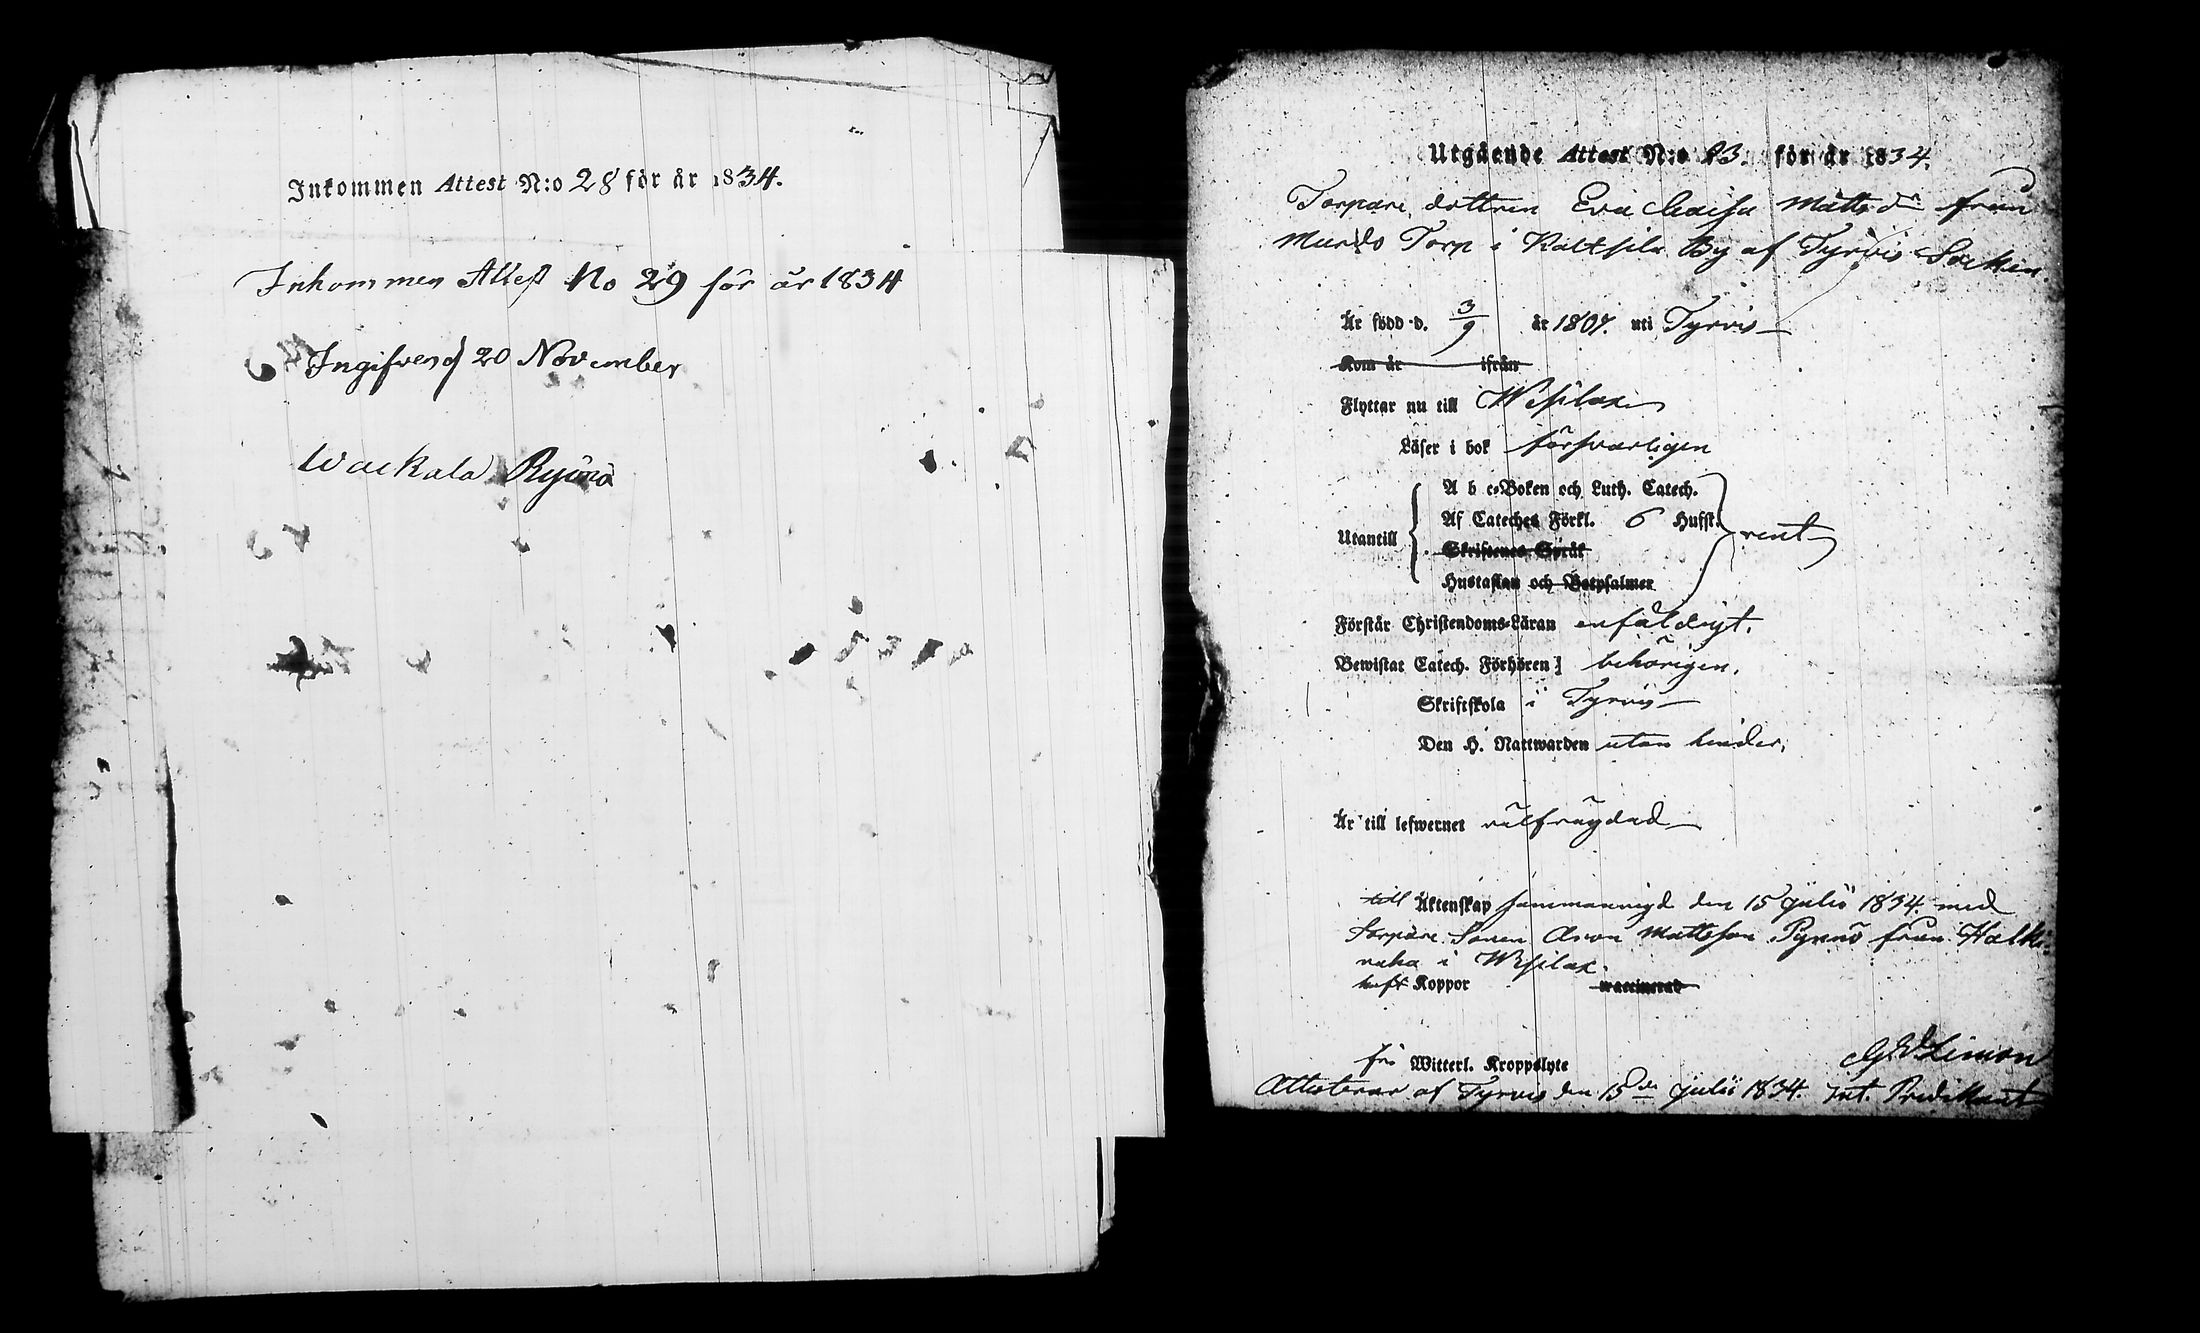 Inkommen Attest N:o 28 för år 1834.
Inkommen Attest No 29 för år 1834
Ingifven d 20 November
Waekala Ryönö
Utgående Attest N:o 23. för år 1834.
Torpare dottren Eva Caisa Mattsdr från
Torp i By af Tyrvis Socken
Är född d. 3/9 år 1807. uti Tyrvis
Kom år ifrån
Flyttar nu till Wesilax
Läser i bok försvarligen
A b c-Boken och Luth. Catech.
Af Cateches Förkl. 6 Hufst.
Utantill rent
Skriftenes Språk
Hustaflan och Botpsalmer
Förstår Christendoms-Läran enfaldigt.
Bewistat Catech. Förhören behörigen.
Skriftskola i Tyrvis
Den H. Nattwarden utan hinder.
Är till lefwernet välfrägdad
till Äktenskap sammanvigd den 15 Julii 1834. med
torpare Sonen Aron Mattsson från Halki-
i Wesilax.
haft Koppor waccinerad
fri Witterl. Kroppslyte
Attesterar af Tyrvis den 15de Julii 1834. Predikant